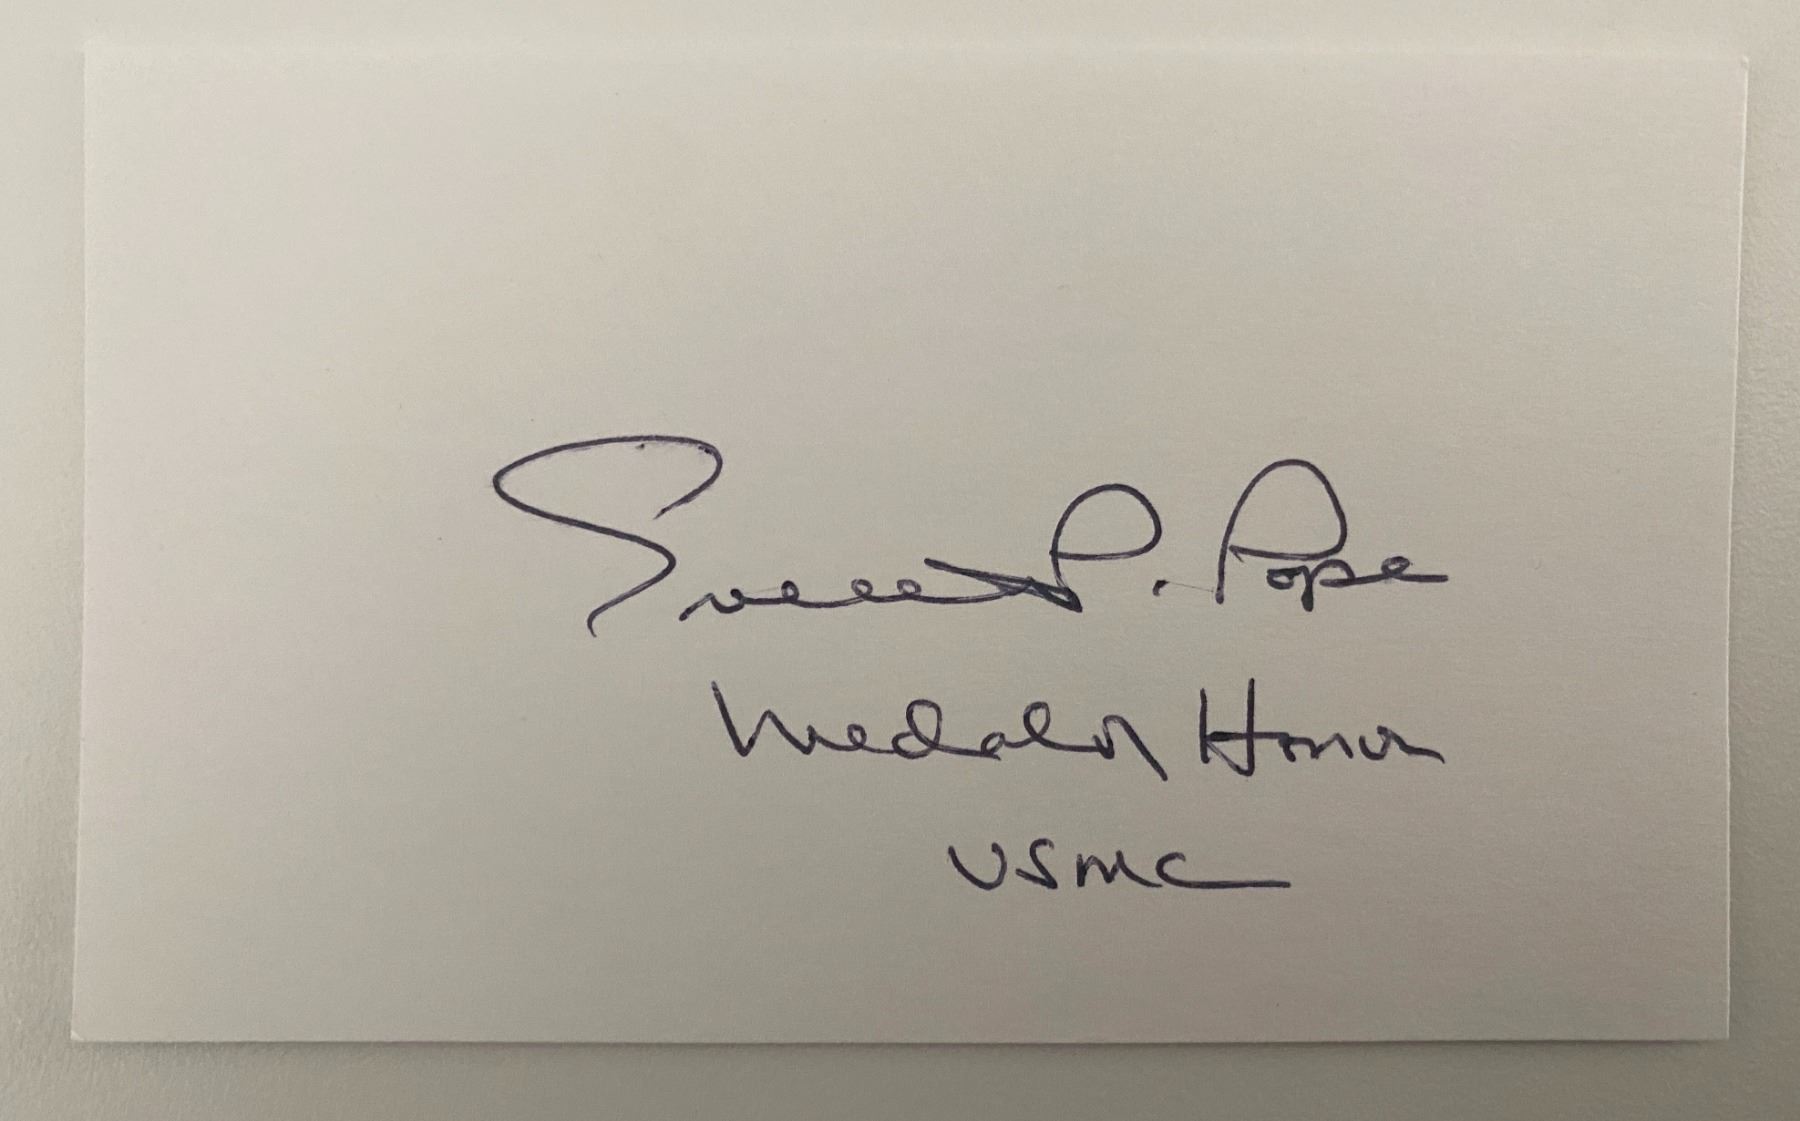 Everett P. Pope
Medal of Honor
USMC